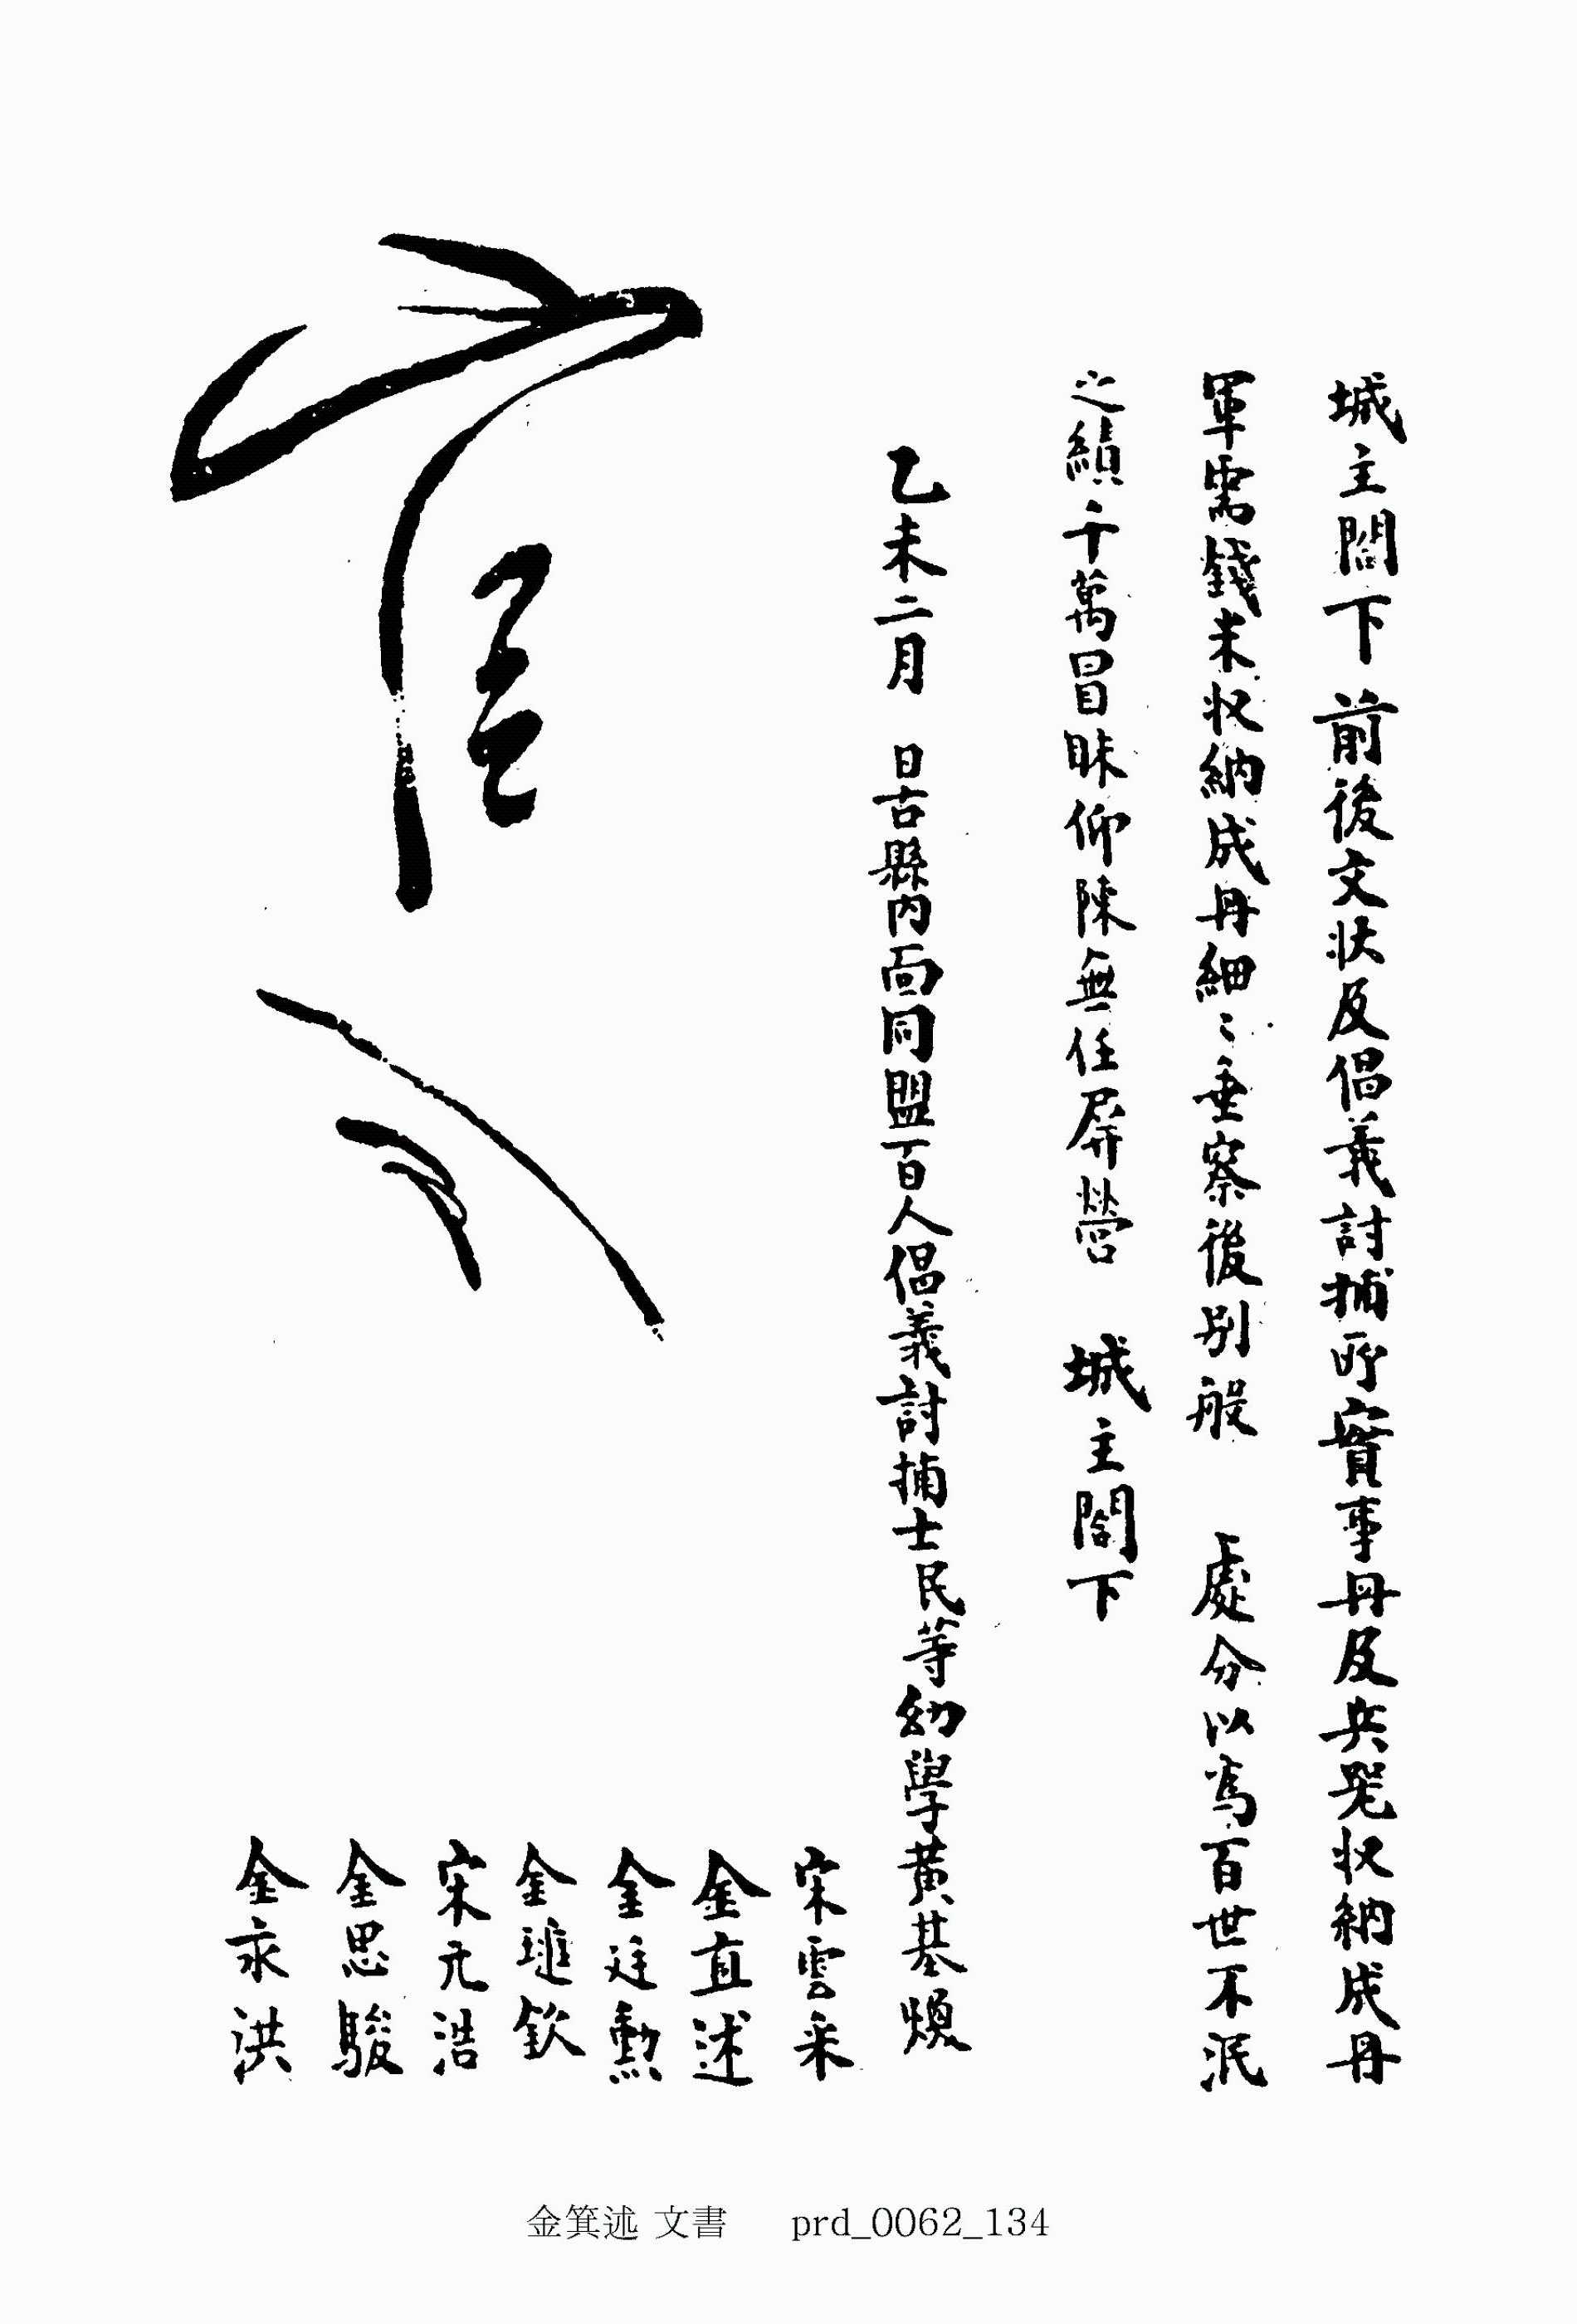 城主閤下 前後文狀及倡義討捕所實事冊及兵器収納成冊
軍需錢未収納成冊細〻垂察後別般 處分以爲百世不泯
之績千萬冒昧仰陳無任屛營 城主閤下
乙未二月 日古縣內面同盟百人倡義討捕士民等幼學黃基煥
宋雲采
金直述
金廷勳
金璡欽
宋元浩
金思駿
金永洪
官
金箕述 文書 prd_0062_134